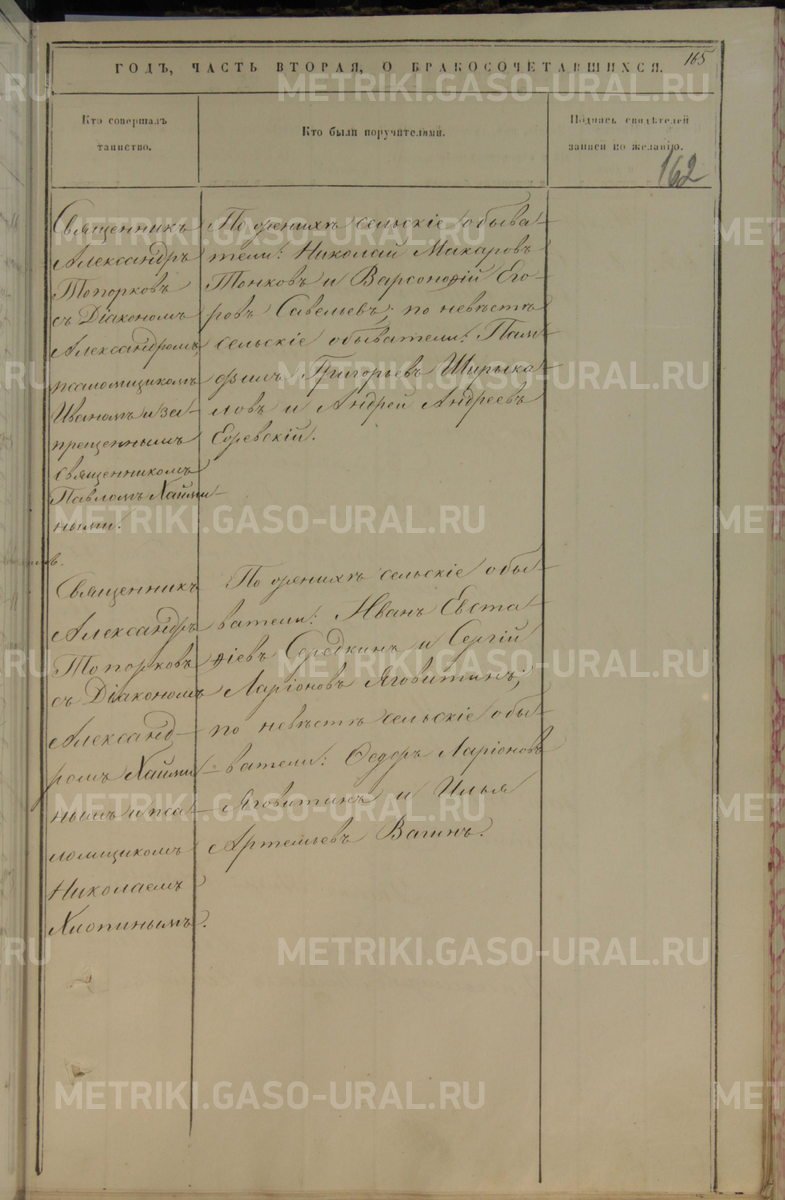 165
ГОДЪ, ЧАСТЬ ВТОРАЯ, О БРАКОСОЧЕТАВШИХСЯ.
Кто совершалъ
таинство.
Кто были поручителями.
Подпись свидѣтелей
записи по желанію.
162
Священникъ
Александръ
Топорковъ
съ Діакономъ
Александромъ,
псаломщикомъ
Иваномъ и за-
прещеннымъ
священникомъ
Павломъ Хайми-
ными.
По женихѣ сельскіе обыва-
тели: Николай Макаровъ
Тонковъ и Варсонофій Его-
ровъ Савельевъ; по невѣстѣ
сельскіе обыватели: Пам-
филъ Григорьевъ Ширыка-
ловъ и Андрей Андреевъ
Священникъ
Александръ
Топорковъ
съ Діакономъ
Александ-
ромъ Хайми-
нымъ и пса-
ломщикомъ
Николаемъ
Хлопинымъ.
По женихѣ сельскіе обы-
ватели: Иванъ Евста-
фіевъ Середкинъ и Сергій
Ларіоновъ Яговитинъ;
по невѣстѣ сельскіе обы-
ватели: Ѳедоръ Ларіоновъ
Яговитинъ и Илья
Артемьевъ Вагинъ.
METRIKI.GASO-URAL.RU